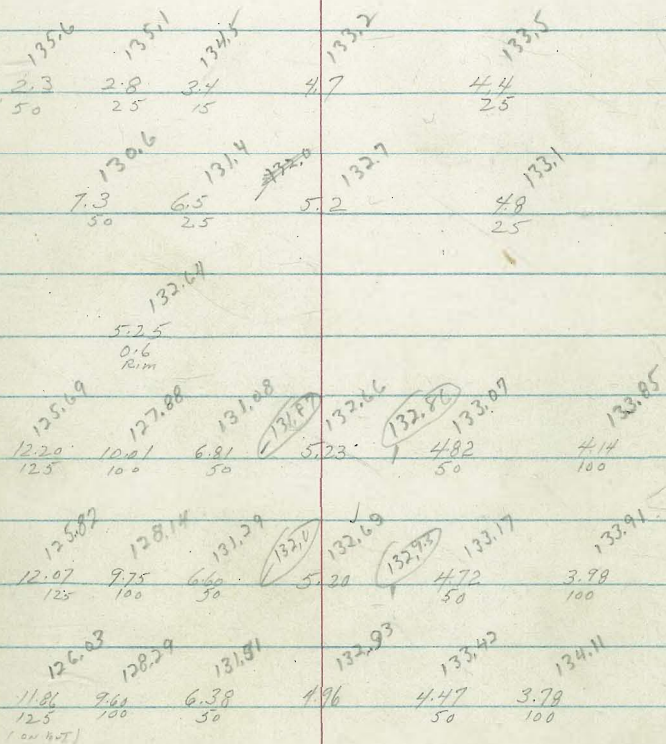 135.6 135.1 134.5 133.2 133.5
2.3 2.8 3.4 4.7 4.4
50 25 15 25
130.6 131.4 132.0 132.7 133.1
7.3 6.5 5.2 4.8
50 25 25
132.64
5.25
0.6
Rim
125.69 127.88 131.08 131.87 132.66 132.86 133.07 133.85
12.20 10.01 6.81 5.23 4.82 4.14
125 100 50 50 100
125.82 128.14 131.29 132.0 132.69 132.93 133.17 133.91
12.07 9.75 6.60 5.20 4.72 3.98
125 100 50 50 100
126.03 128.29 131.51 132.93 133.42 134.11
11.86 9.60 6.38 4.96 4.47 3.78
125 100 50 50 100